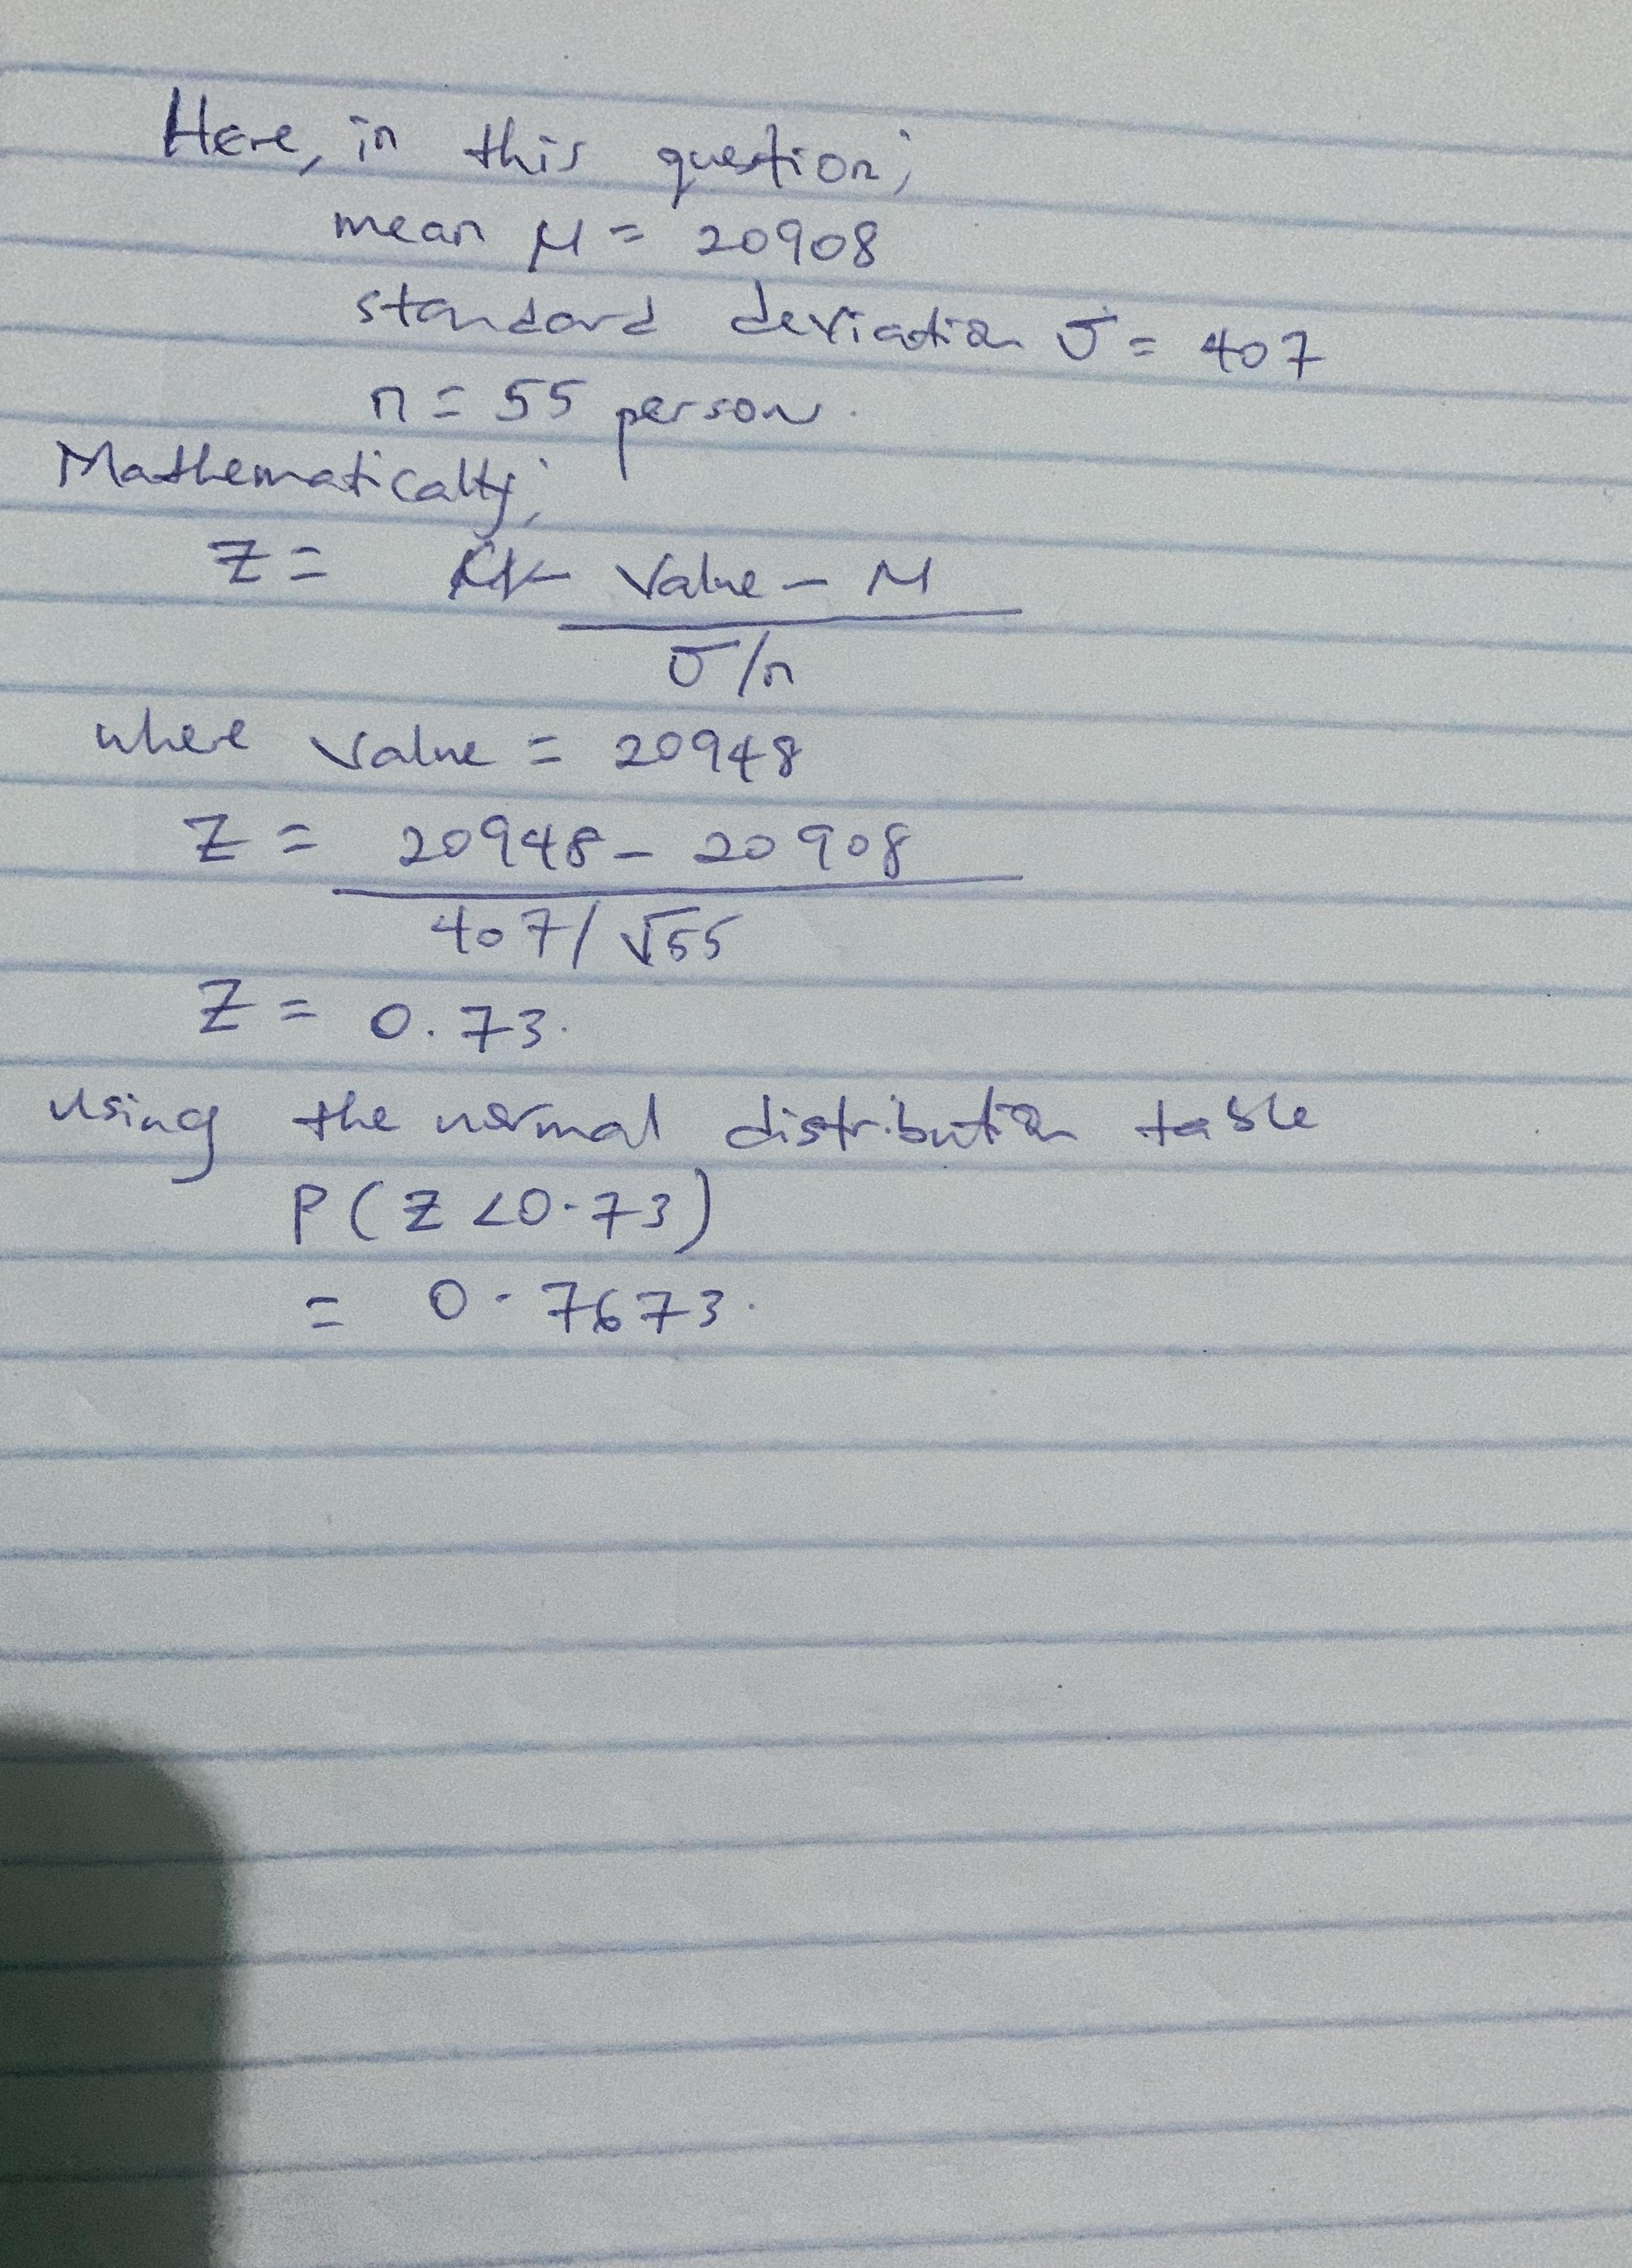 Here, in this question;
mean μ = 20908
standard deviation σ = 407
n = 55 person.
Mathematically;
Z = Value - μ
σ/n
where value = 20948
Z = 20948 - 20908
407/√55
Z = 0.73.
using the normal distribution table
P(Z<0.73)
= 0.7673.